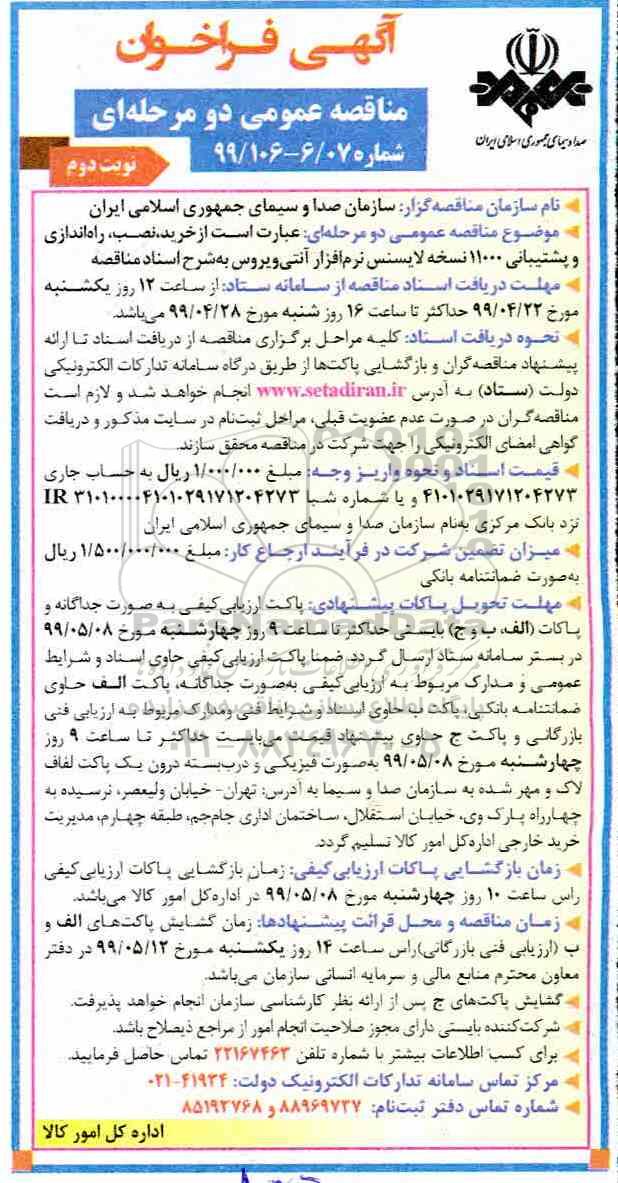 آگهی فراخوان
مناقصه عمومی دو مرحله‌ای
شماره ۹۹/۱۰۶-۶/۰۷
نوبت دوم
صدا و سیمای جمهوری اسلامی ایران
نام سازمان مناقصه‌گزار: سازمان صدا و سیمای جمهوری اسلامی ایران
موضوع مناقصه عمومی دو مرحله‌ای: عبارت است از خرید، نصب، راه‌اندازی
و پشتیبانی ۱۱۰۰۰ نسخه لایسنس نرم‌افزار آنتی‌ویروس به‌شرح اسناد مناقصه
مهلت دریافت اسناد مناقصه از سامانه ستاد: از ساعت ۱۲ روز یکشنبه
مورخ ۹۹/۰۴/۲۲ حداکثر تا ساعت ۱۶ روز شنبه مورخ ۹۹/۰۴/۲۸ می‌باشد.
نحوه دریافت اسناد: کلیه مراحل برگزاری مناقصه از دریافت اسناد تا ارائه
پیشنهاد مناقصه‌گران و بازگشایی پاکت‌ها از طریق درگاه سامانه تدارکات الکترونیکی
دولت (ستاد) به آدرس www.setadiran.ir انجام خواهد شد و لازم است
مناقصه‌گران در صورت عدم عضویت قبلی، مراحل ثبت‌نام در سایت مذکور و دریافت
گواهی امضای الکترونیکی را جهت شرکت در مناقصه محقق سازند.
قیمت اسناد و نحوه واریز وجه: مبلغ ۱/۰۰۰/۰۰۰ ریال به حساب جاری
۴۱۰۱۰۲۹۱۷۱۲۰۴۲۷۳ و یا شماره شبا IR ۳۱۰۱۰۰۰۰۴۱۰۱۰۲۹۱۷۱۲۰۴۲۷۳
نزد بانک مرکزی به‌نام سازمان صدا و سیمای جمهوری اسلامی ایران
میزان تضمین شرکت در فرآیند ارجاع کار: مبلغ ۱/۵۰۰/۰۰۰/۰۰۰ ریال
به‌صورت ضمانتنامه بانکی
مهلت تحویل پاکات پیشنهادی: پاکت ارزیابی‌کیفی به صورت جداگانه و
پاکات (الف، ب و ج) بایستی حداکثر تا ساعت ۹ روز چهارشنبه مورخ ۹۹/۰۵/۰۸
در بستر سامانه ستاد ارسال گردد. ضمنا پاکت ارزیابی‌کیفی حاوی اسناد و شرایط
عمومی و مدارک مربوط به ارزیابی‌کیفی به‌صورت جداگانه، پاکت الف حاوی
ضمانتنامه بانکی، پاکت ب حاوی اسناد و شرایط فنی ومدارک مربوط به ارزیابی فنی
بازرگانی و پاکت ج حاوی پیشنهاد قیمت می‌بایست حداکثر تا ساعت ۹ روز
چهارشنبه مورخ ۹۹/۰۵/۰۸ به‌صورت فیزیکی و درب‌بسته درون یک پاکت لفاف
لاک و مهر شده به سازمان صدا و سیما به آدرس: تهران- خیابان ولیعصر، نرسیده به
چهارراه پارک وی، خیابان استقلال، ساختمان اداری جام‌جم، طبقه چهارم، مدیریت
خرید خارجی اداره‌کل امور کالا تسلیم گردد.
زمان بازگشایی پاکات ارزیابی‌کیفی: زمان بازگشایی پاکات ارزیابی‌کیفی
راس ساعت ۱۰ روز چهارشنبه مورخ ۹۹/۰۵/۰۸ در اداره‌کل امور کالا می‌باشد.
زمان مناقصه و محل قرائت پیشنهادها: زمان گشایش پاکت‌های الف و
ب (ارزیابی فنی بازرگانی)راس ساعت ۱۴ روز یکشنبه مورخ ۹۹/۰۵/۱۲ در دفتر
معاون محترم منابع مالی و سرمایه انسانی سازمان می‌باشد.
گشایش پاکت‌های ج پس از ارائه نظر کارشناسی سازمان انجام خواهد پذیرفت.
شرکت‌کننده بایستی دارای مجوز صلاحیت انجام امور از مراجع ذیصلاح باشد.
برای کسب اطلاعات بیشتر با شماره تلفن ۲۲۱۶۷۴۶۳ تماس حاصل فرمایید.
مرکز تماس سامانه تدارکات الکترونیک دولت: ۴۱۹۳۴-۰۲۱
شماره تماس دفتر ثبت‌نام: ۸۸۹۶۹۷۳۷ و ۸۵۱۹۳۷۶۸
اداره کل امور کالا
ParsNamadData
۰۲۱-۸۸۳۴۹۶۷۰-۵